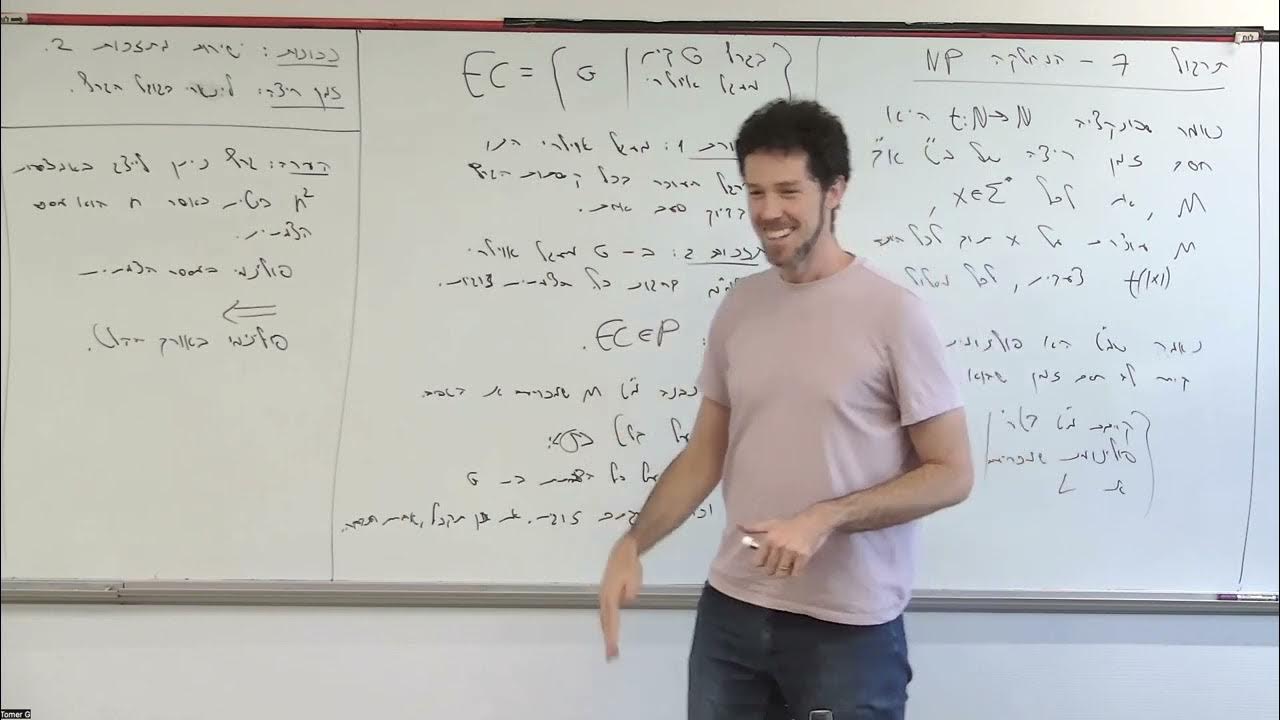 תרגול 7 - המחלקה NP
נאמר שפונקציה t:N→N היא
חסם זמן ריצה של מ"ט אם
M, אם לכל x∈Σ*,
M עוצרת על x תוך לכל היותר
t(|x|) צעדים, לכל
נאמר שמ"ט היא פולינומית
קיים לה חסם זמן שהוא
קיימת מ"ט
פולינומית שמכריעה
את L
EC = { G | בגרף G קיים מעגל אוילרי }
1: מעגל אוילרי הינו
העובר בכל קשתות הגרף
בדיוק פעם אחת.
תזכורת 2: ב-G מעגל אוילרי
דרגות כל הצמתים זוגיות.
EC∈P
נבנה מ"ט M שמכריעה את השפה.
על קלט <G>:
על כל הצמתים ב-G
זוגי. אם כן תקבל, אחרת תדחה.
נכונות: ישירות מתזכורת 2.
זמן ריצה: לינארי בגודל הגרף.
הערה: גרף ניתן לייצג באמצעות
n² ביטים כאשר n הוא מספר
הצמתים.
פולינומי במספר הצמתים
⇐
פולינומי באורך הקלט.
Tomer G